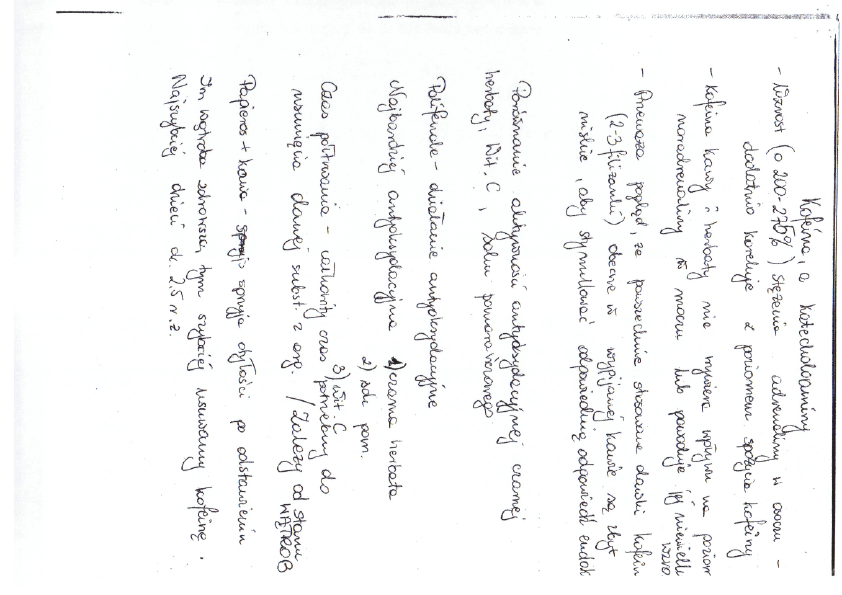 Kofeina, a katecholaminy
- Wzrost (o 200-275%) stężenia adrenaliny w moczu -
dodatnio koreluje z poziomem spożycia kofeiny
- Kofeina kawy i herbaty nie wywiera wpływu na poziom
noradrenaliny w moczu lub powoduje jej niewielki
wzro
- Przeważa pogląd, że powszechnie stosowane dawki kofein
(2-3 filiżanki) obecne w wypijanej kawie są zbyt
niskie, aby stymulować odpowiednią odpowiedź endok
Porównanie aktywności antyoksydacyjnej czarnej
herbaty, Wit. C, soku pomarańczowego
Polifenole - działanie antyoksydacyjne
Najbardziej antyoksydacyjna 1) czarna herbata
2) sok pom.
3) Wit C
Czas półtrwania - całkowity czas potrzebny do
usunięcia danej subst. z org. / Zależy od stanu
WĄTROB
Papieros + kawa - sprzyja otyłości po odstawieniu
Im wątroba zdrowsza, tym szybciej usuwamy kofeinę.
Najszybciej dzieci ok. 2,5 r.ż.